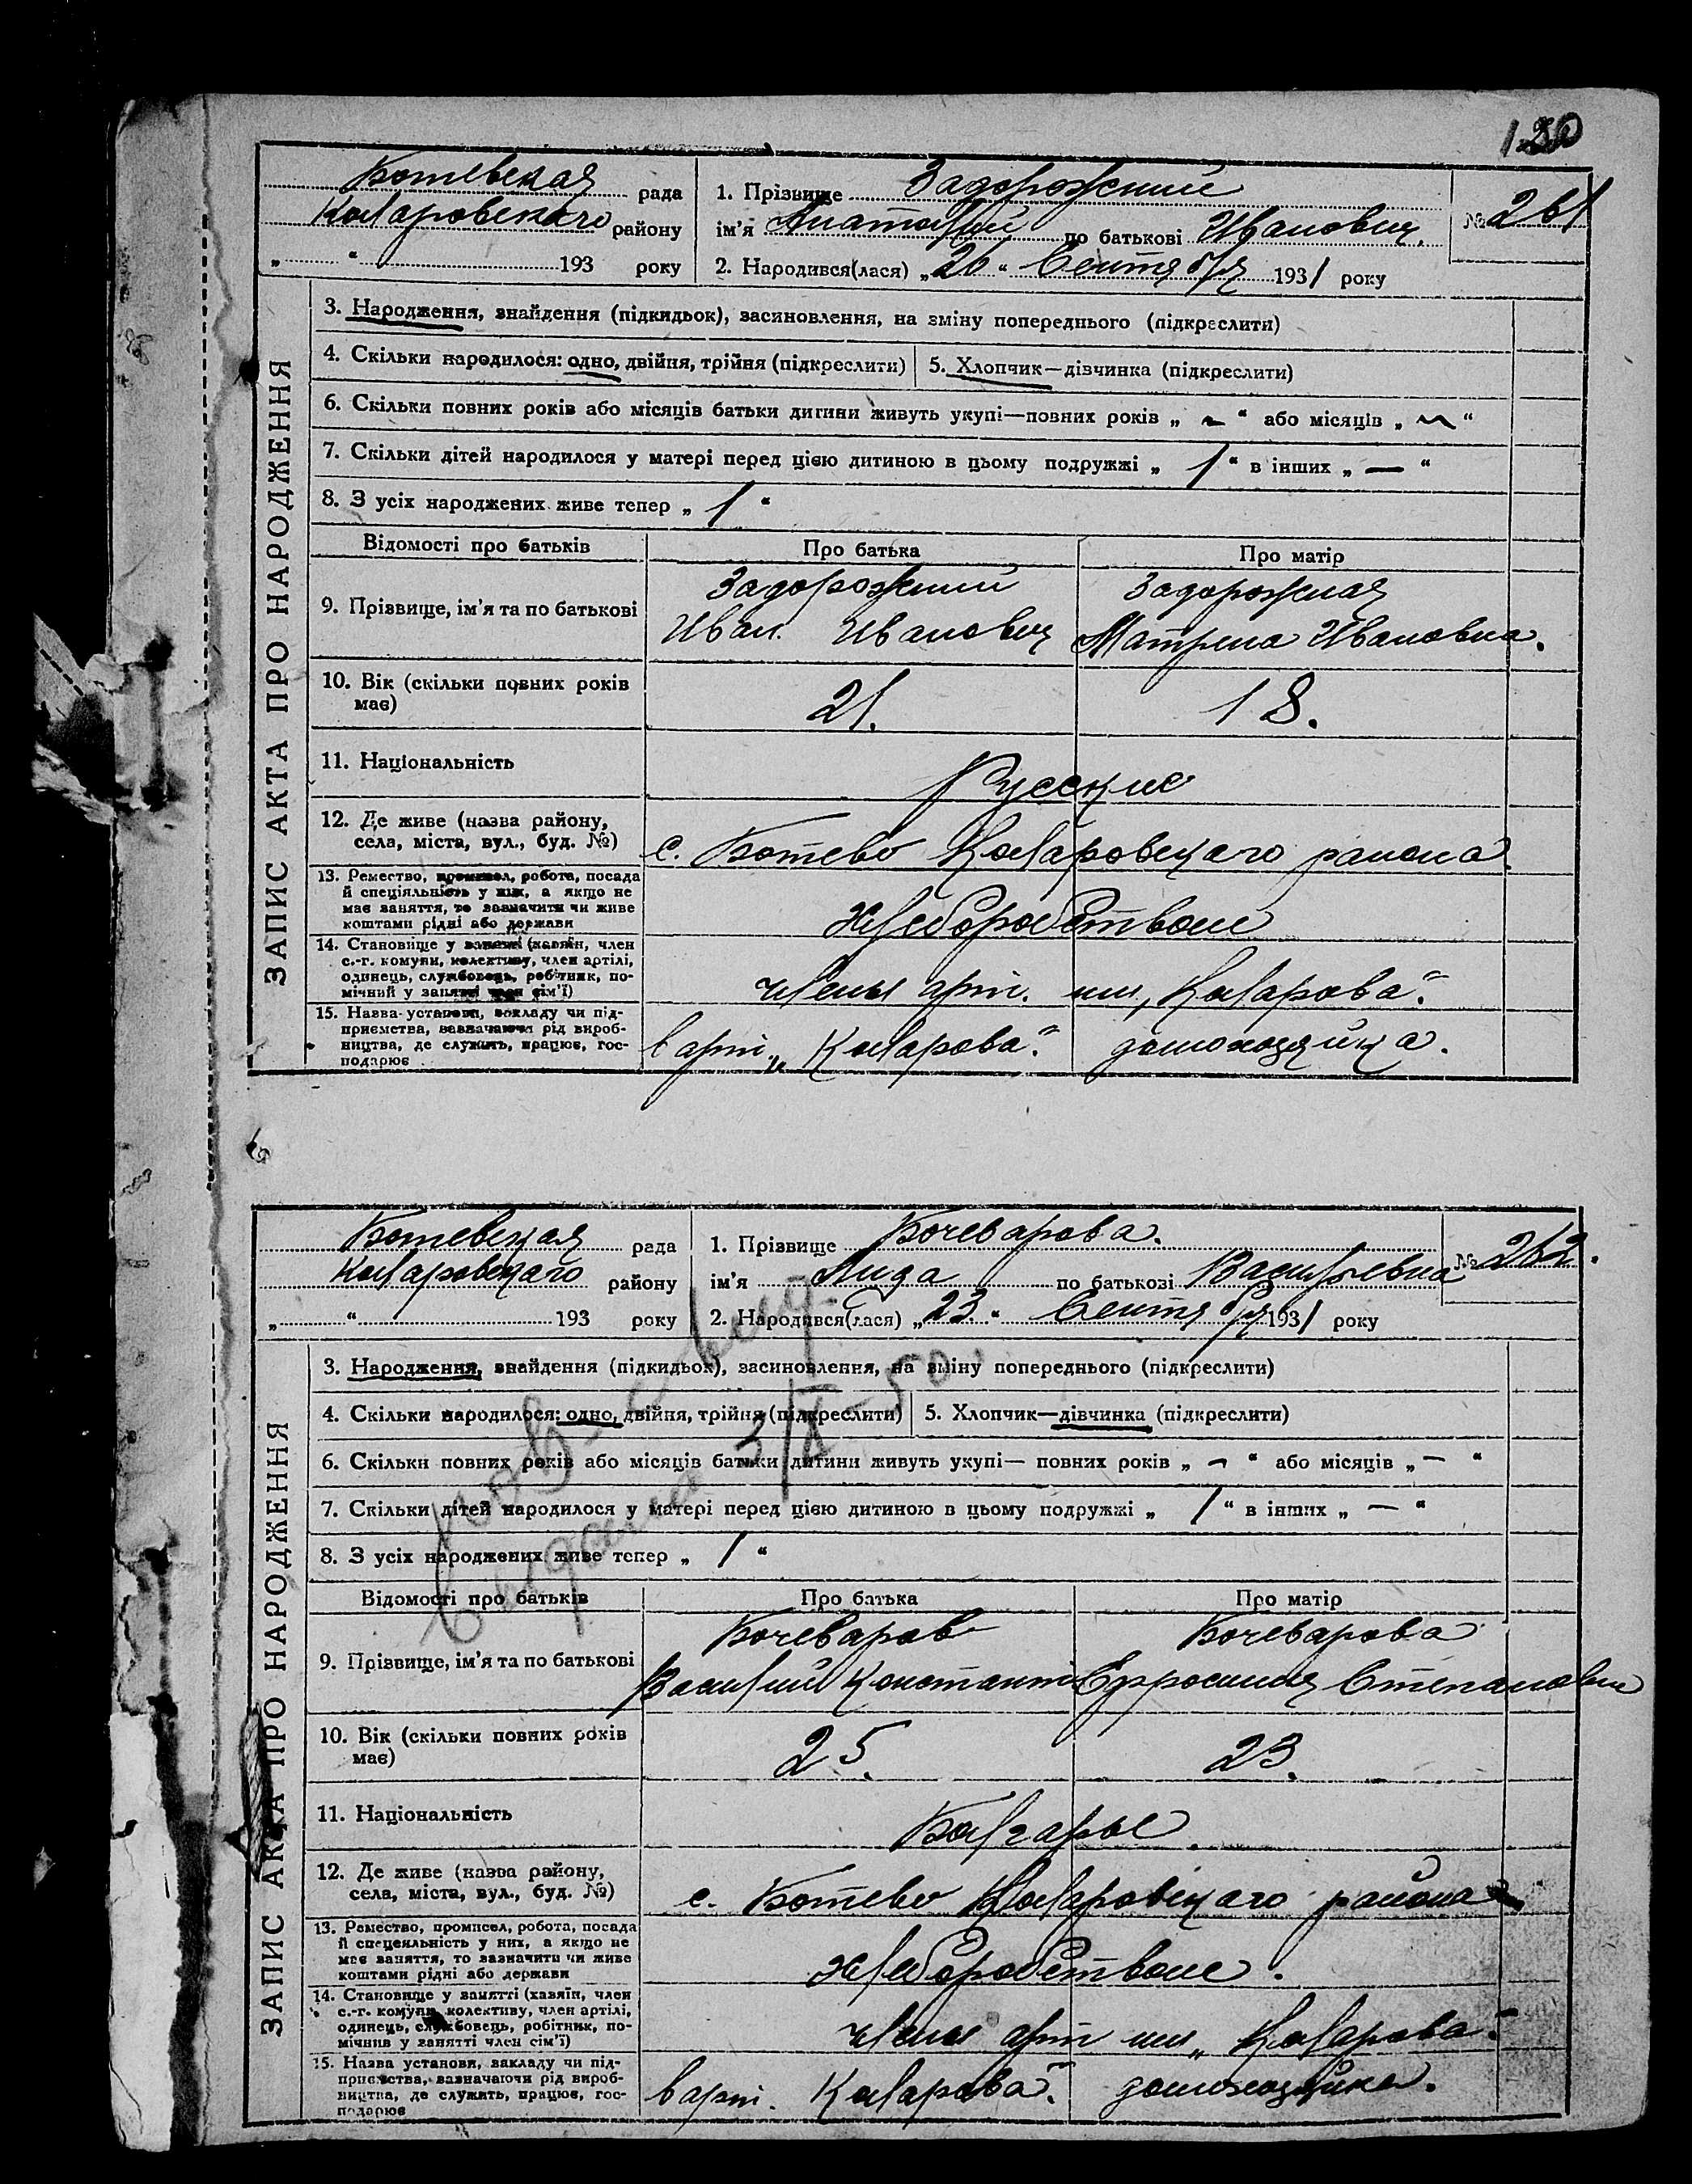 130
Ботевская рада
Коларовского району
„ “ 193 року
1. Прізвище Задорожний
ім’я Анатолий по батькові Иванович.
2. Народився(лася) „26“ Сентября 1931 року
№ 261
ЗАПИС АКТА ПРО НАРОДЖЕННЯ
3. Народження, знайдення (підкидьок), засиновлення, на зміну попереднього (підкреслити)
4. Скільки народилося: одно, двійня, трійня (підкреслити) 5. Хлопчик—дівчинка (підкреслити)
6. Скільки повних років або місяців батьки дитини живуть укупі—повних років „ ~ “ або місяців „ ~ “
7. Скільки дітей народилося у матері перед цією дитиною в цьому подружжі „ 1 “ в інших „ — “
8. З усіх народжених живе тепер „ 1 “
Відомості про батьків Про батька Про матір
9. Прізвище, ім’я та по батькові
Задорожний Задорожная
Иван. Иванович Матрена Ивановна.
10. Вік (скільки повних років
має)
21. 18.
11. Національність
Русские
12. Де живе (назва району,
села, міста, вул., буд. №)
с. Ботево Коларовского района
13. Ремество, промисел, робота, посада
й спеціяльність у них, а якщо не
має заняття, то зазначити чи живе
коштами рідні або держави
Хлеборобством
14. Становище у занятті (хазяїн, член
с.-г. комуни, колективу, член артілі,
одинець, службовець, робітник, по-
мічний у занятті член сім’ї)
члены арт. им „Коларова“.
15. Назва установи, закладу чи під-
приємства, зазначаючи рід вироб-
ництва, де служить, працює, гос-
подарює
в арт. „Коларова“. домохозяйка.
Ботевская рада
Коларовского району
„ “ 193 року
1. Прізвище Бочеварова.
ім’я Лида по батькові Васильевна
2. Народився(лася) „23.“ Сентября 1931 року
№ 262.
ЗАПИС АКТА ПРО НАРОДЖЕННЯ
3. Народження, знайдення (підкидьок), засиновлення, на зміну попереднього (підкреслити)
4. Скільки народилося: одно, двійня, трійня (підкреслити) 5. Хлопчик—дівчинка (підкреслити)
6. Скільки повних років або місяців батьки дитини живуть укупі— повних років „ — “ або місяців „ — “
7. Скільки дітей народилося у матері перед цією дитиною в цьому подружжі „ 1 “ в інших „ — “
8. З усіх народжених живе тепер „ 1 “
Відомості про батьків Про батька Про матір
9. Прізвище, ім’я та по батькові
Бочеваров Бочеварова
Василий Константи Ефросиния Степановн
10. Вік (скільки повних років
має)
25. 23.
11. Національність
Болгары.
12. Де живе (назва району,
села, міста, вул., буд. №)
с. Ботево Коларовского района
13. Ремество, промисел, робота, посада
й спецеяльність у них, а якщо не
має заняття, то зазначити чи живе
коштами рідні або держави
Хлеборобством.
14. Становище у занятті (хазяїн, член
с.-г. комуни, колективу, член артілі,
одинець, службовець, робітник, по-
мічний у занятті член сім’ї)
члены арт им „Коларова“.
15. Назва установи, закладу чи під-
приємства, зазначаючи рід вироб-
ництва, де служить, працює, гос-
подарює
в арт. Коларова“. домохозяйка.
выдано 3/X-50